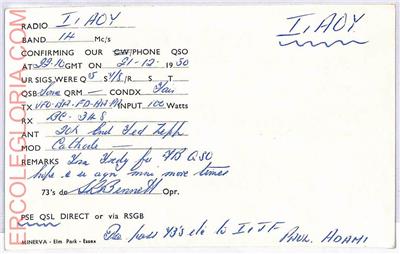 ERCOLEGLORIA.COM
RADIO I1AOY
I1AOY
BAND 14 Mc/s
CONFIRMING OUR CW/PHONE QSO
AT 22.10 GMT ON 21-12-1950
UR SIGS WERE Q 5 S 7/8 R S T
QSB None QRM — CONDX Fair
TX VFO-BA-FD-BA-PA INPUT 100 Watts
RX BC-348
ANT 20½ End Fed Zepp
MOD Cathode —
REMARKS Tnx Fredy for FB QSO
hope c u agn mni more times
73's de Bennett Opr.
PSE QSL DIRECT or via RSGB
MINERVA - Elm Park - Essex
Pse pass 73's etc to I1TF
PAUL.